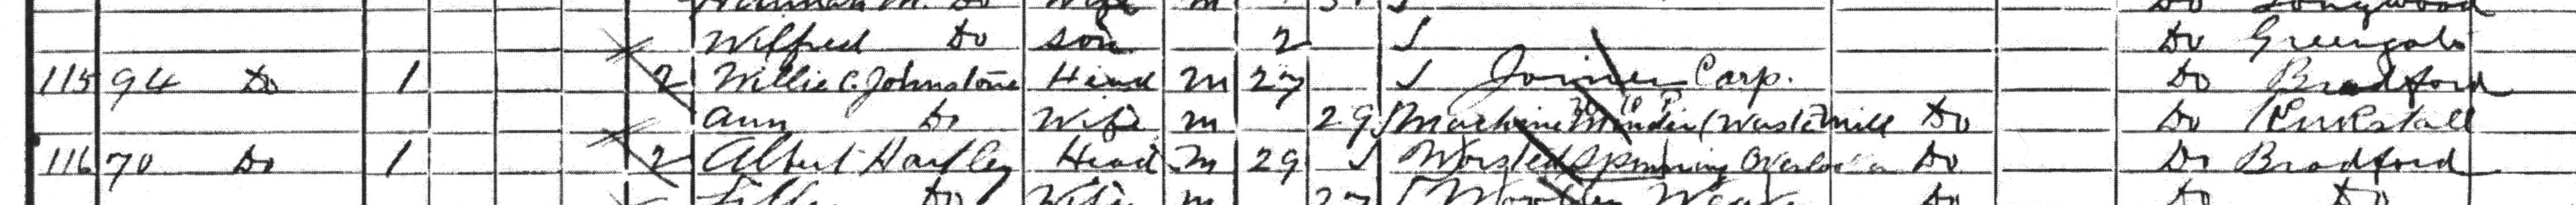 Do Longwood
Wilfred Do son 2 Do Greengate
115 94 Do 1 2 Willie C. Johnstone Head M 27 Joiner Carp. Do Bradford
Ann Do Wife M 29 Machine Minder (Waste Mill Do Do Kirkstall
116 70 Do 1 2 Albert Hartley Head M 29 Worsted Spinning Overlooker Do Do Bradford
Do Wife M 27 Do Do Do